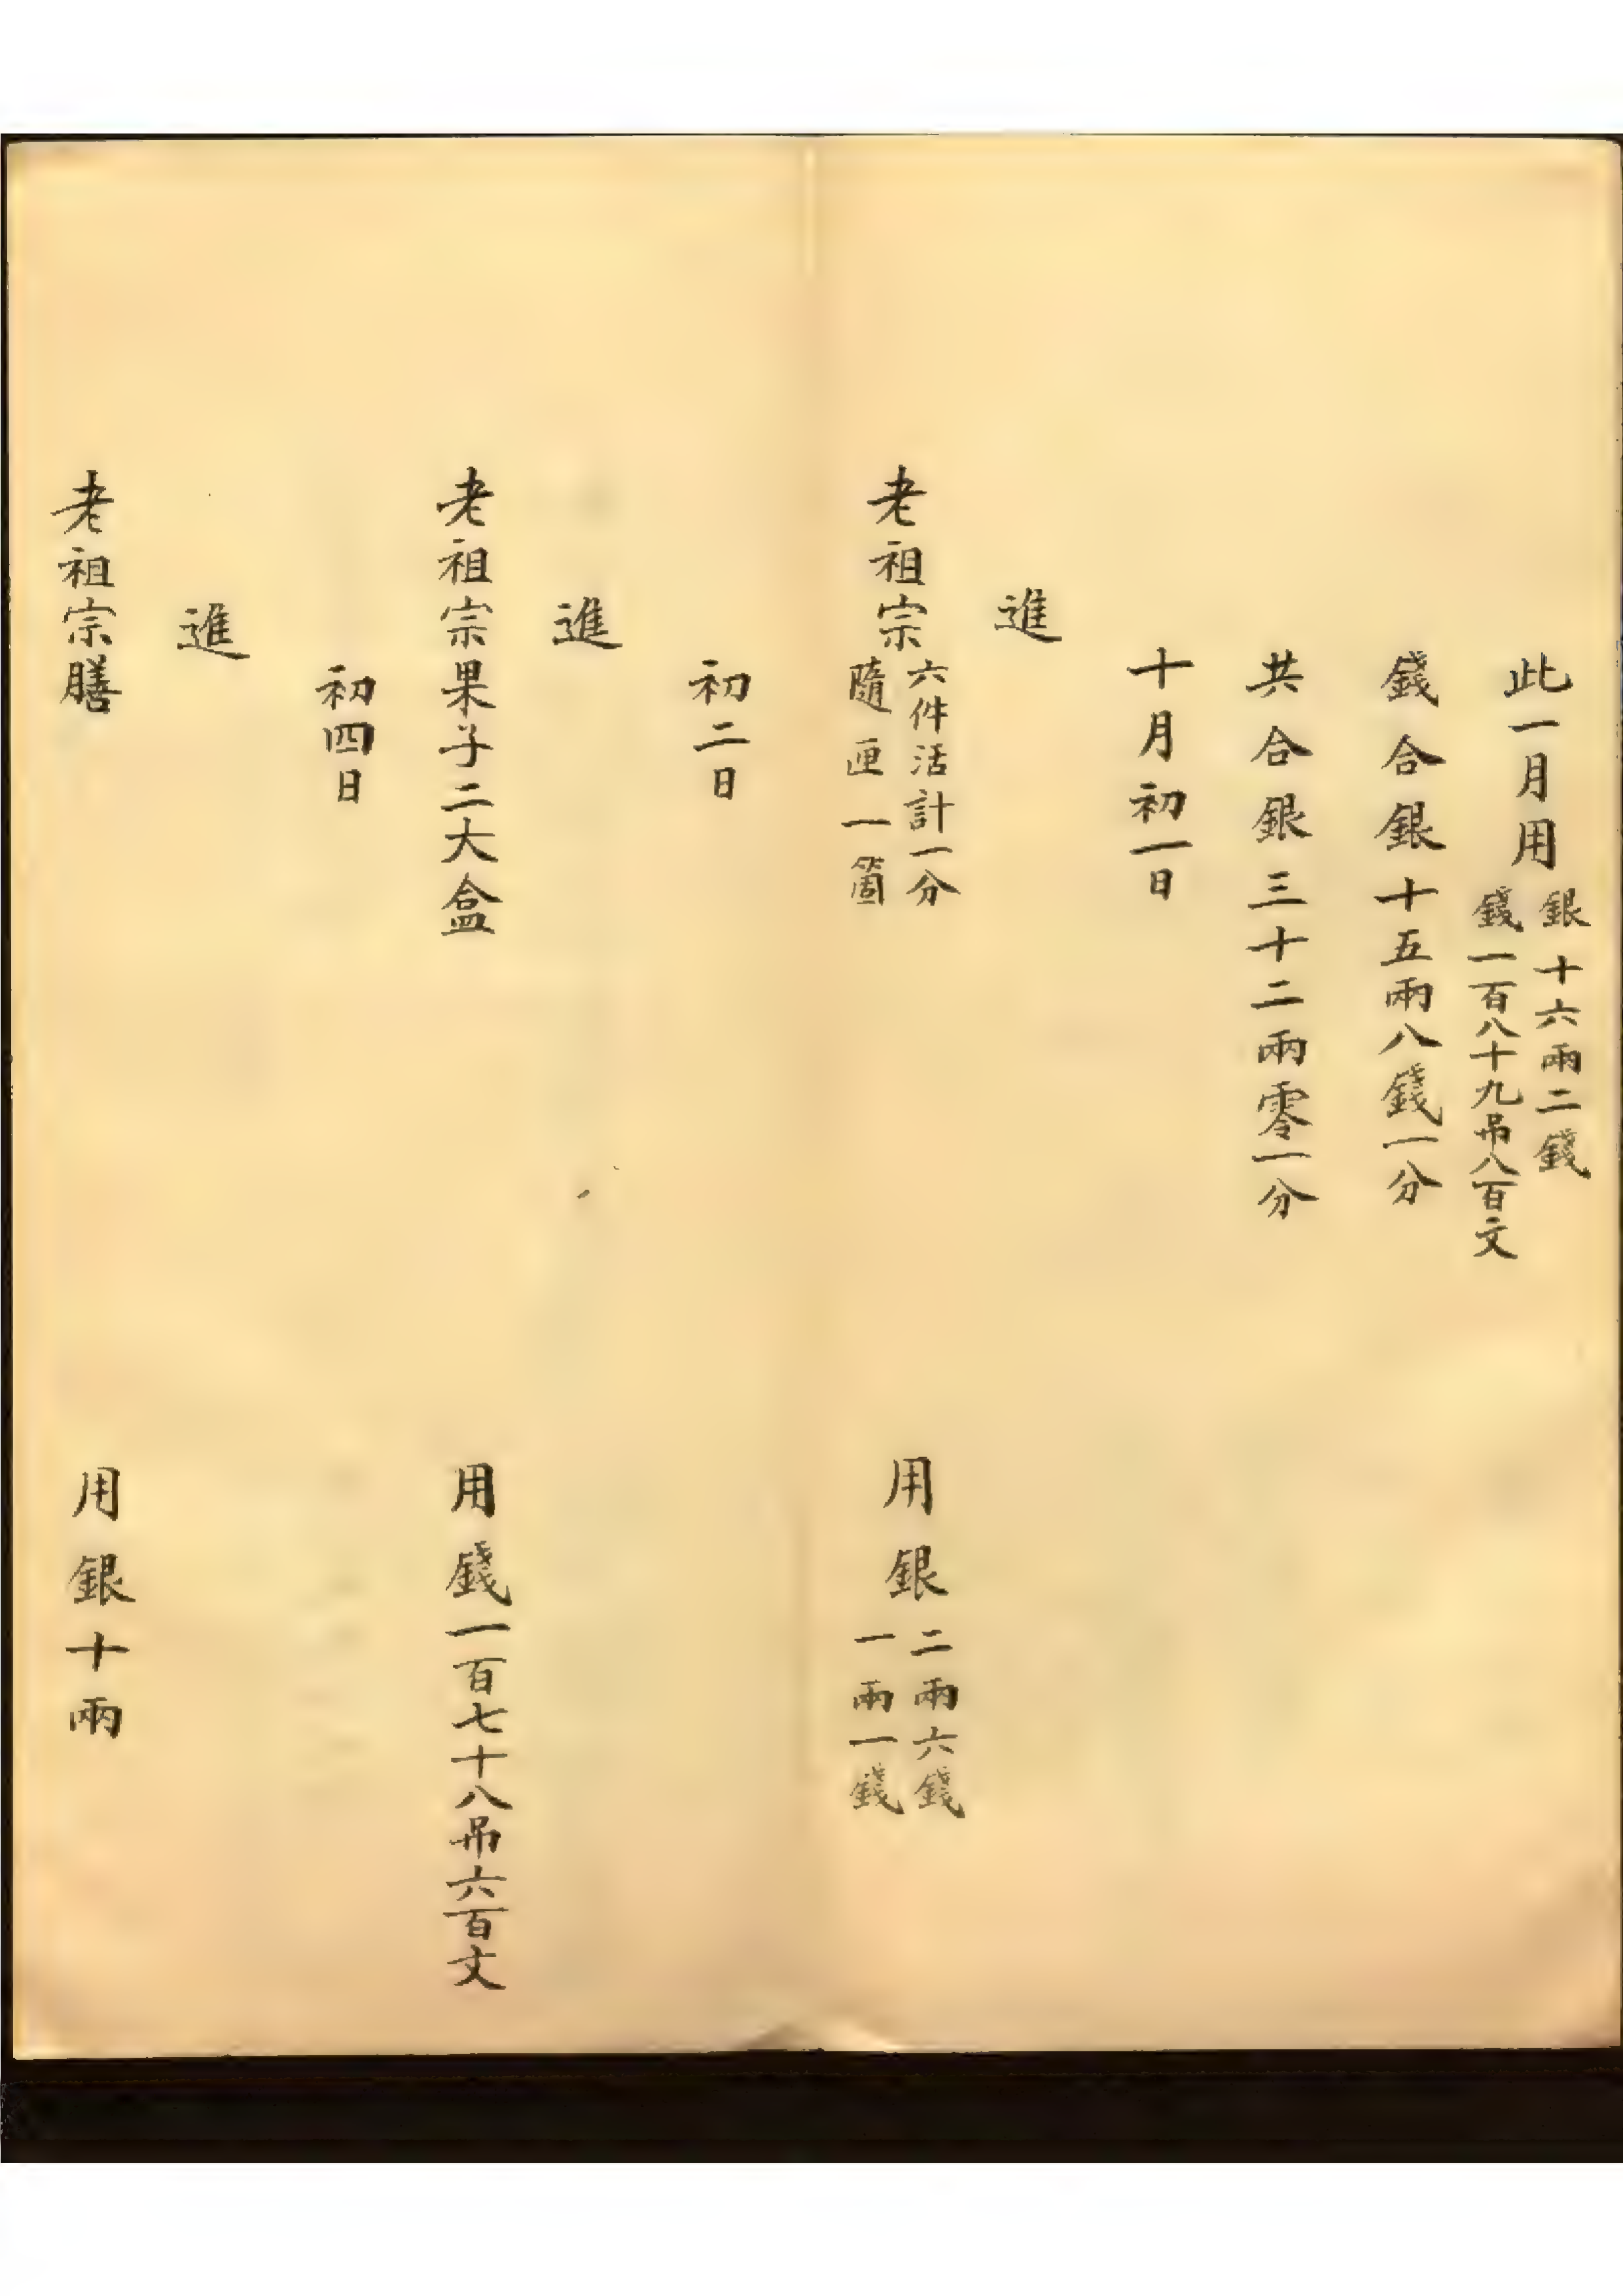 此一月用銀十六兩二錢
錢一百八十九吊八百文
錢合銀十五兩八錢一分
共合銀三十二兩零一分
十月初一日
進
老祖宗六件活計一分
隨匣一箇
用銀二兩六錢
一兩一錢
初二日
進
老祖宗果子二大盒
用錢一百七十八吊六百文
初四日
進
老祖宗膳
用銀十兩